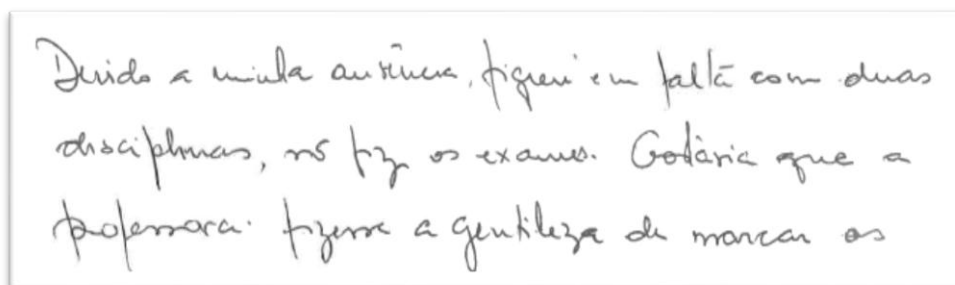 Devido a minha ausência, fiquei em falta com duas
disciplinas, não fiz os exames. Gostaria que a
professora fizesse a gentileza de marcar os